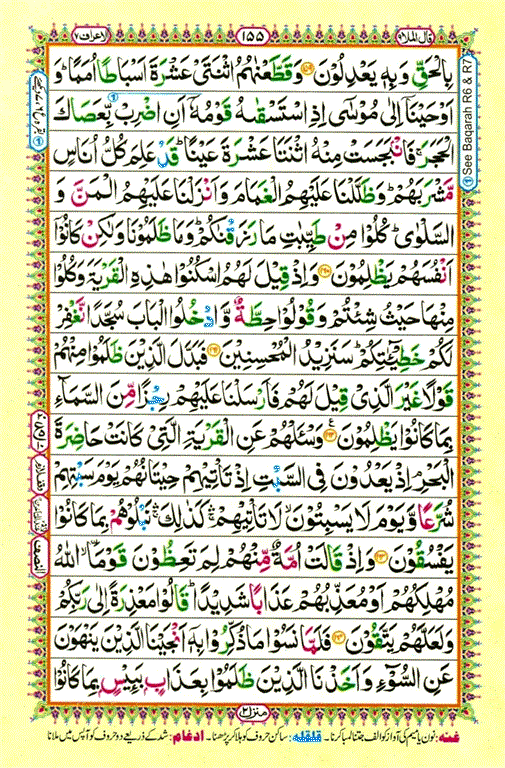 قال الملا٩
١٥٥
الاعراف٧
بِالْحَقِّ وَبِهٖ يَعْدِلُوْنَ ﴿۱۵۹﴾ وَقَطَّعْنٰهُمُ اثْنَتَيْ عَشْرَةَ اَسْبَاطًا اُمَمًا ؕ وَ
اَوْحَيْنَاۤ اِلٰى مُوْسٰۤى اِذِ اسْتَسْقٰىهُ قَوْمُهٗۤ اَنِ اضْرِبْ بِّعَصَاكَ
الْحَجَرَ ۚ فَانْۢبَجَسَتْ مِنْهُ اثْنَتَا عَشْرَةَ عَيْنًا ؕ قَدْ عَلِمَ كُلُّ اُنَاسٍ
مَّشْرَبَهُمْ ؕ وَظَلَّلْنَا عَلَيْهِمُ الْغَمَامَ وَاَنْزَلْنَا عَلَيْهِمُ الْمَنَّ وَ
السَّلْوٰى ؕ كُلُوْا مِنْ طَيِّبٰتِ مَا رَزَقْنٰكُمْ ؕ وَمَا ظَلَمُوْنَا وَلٰكِنْ كَانُوْۤا
اَنْفُسَهُمْ يَظْلِمُوْنَ ﴿۱۶۰﴾ وَاِذْ قِيْلَ لَهُمُ اسْكُنُوْا هٰذِهِ الْقَرْيَةَ وَكُلُوْا
مِنْهَا حَيْثُ شِئْتُمْ وَقُوْلُوْا حِطَّةٌ وَّادْخُلُوا الْبَابَ سُجَّدًا نَّغْفِرْ
لَكُمْ خَطِيْٓـٰٔتِكُمْ ؕ سَنَزِيْدُ الْمُحْسِنِيْنَ ﴿۱۶۱﴾ فَبَدَّلَ الَّذِيْنَ ظَلَمُوْا مِنْهُمْ
قَوْلًا غَيْرَ الَّذِيْ قِيْلَ لَهُمْ فَاَرْسَلْنَا عَلَيْهِمْ رِجْزًا مِّنَ السَّمَآءِ
بِمَا كَانُوْا يَظْلِمُوْنَ ﴿۱۶۲﴾ وَسْـَٔلْهُمْ عَنِ الْقَرْيَةِ الَّتِيْ كَانَتْ حَاضِرَةَ
الْبَحْرِ ۘ اِذْ يَعْدُوْنَ فِي السَّبْتِ اِذْ تَاْتِيْهِمْ حِيْتَانُهُمْ يَوْمَ سَبْتِهِمْ
شُرَّعًا وَّيَوْمَ لَا يَسْبِتُوْنَ ۙ لَا تَاْتِيْهِمْ ۛۚ كَذٰلِكَ ۛۚ نَبْلُوْهُمْ بِمَا كَانُوْا
يَفْسُقُوْنَ ﴿۱۶۳﴾ وَاِذْ قَالَتْ اُمَّةٌ مِّنْهُمْ لِمَ تَعِظُوْنَ قَوْمَا ۙ اللّٰهُ
مُهْلِكُهُمْ اَوْ مُعَذِّبُهُمْ عَذَابًا شَدِيْدًا ؕ قَالُوْا مَعْذِرَةً اِلٰى رَبِّكُمْ
وَلَعَلَّهُمْ يَتَّقُوْنَ ﴿۱۶۴﴾ فَلَمَّا نَسُوْا مَا ذُكِّرُوْا بِهٖۤ اَنْجَيْنَا الَّذِيْنَ يَنْهَوْنَ
عَنِ السُّوْٓءِ وَاَخَذْنَا الَّذِيْنَ ظَلَمُوْا بِعَذَابٍۭ بَـِٔيْسٍۭ بِمَا كَانُوْا
See Baqarah R6 & R7
النصف
منزل۲
غنه: نون یا میم کی آواز کو الف جتنا لمبا کرنا۔ قلقله: ساکن حروف کو ہلا کر پڑھنا۔ ادغام: شد کے ذریعے دو حروف کو آپس میں ملانا